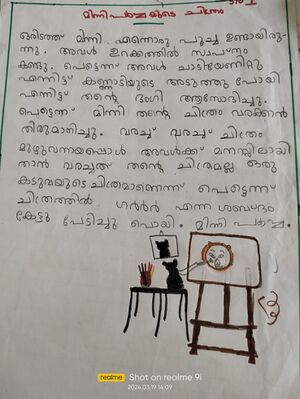 മിന്നി പൂച്ചയുടെ ചിത്രം
ഒരിടത്ത് മിന്നി എന്നൊരു പൂച്ച ഉണ്ടായിരു-
ന്നു. അവൾ ഉറക്കത്തിൽ സ്വപ്നം
കണ്ടു. പെട്ടെന്ന് അവൾ ചാടിയേണിറ്റു
എന്നിട്ട് കണ്ണാടിയുടെ അടുത്തു പോയി
എന്നിട്ട് തന്റെ ഭംഗി ആസ്വദിച്ചു.
പെട്ടെന്ന് മിന്നി തന്റെ ചിത്രം വരക്കാൻ
തീരുമാനിച്ചു. വരച്ച് വരച്ച് ചിത്രം
മുഴുവനായപ്പൊൾ അവൾക്ക് മനസ്സിലായി
താൻ വരച്ചത് തന്റെ ചിത്രമല്ല ഒരു
കടുവയുടെ ചിത്രമാണെന്ന് പെട്ടെന്ന്
ചിത്രത്തിൽ ഗർർർ എന്ന ശബ്ദം
കേട്ടു പേടിച്ചു പൊയി. മിന്നി പൂച്ച.
realme
Shot on realme 9i
2024.03.19 14:09